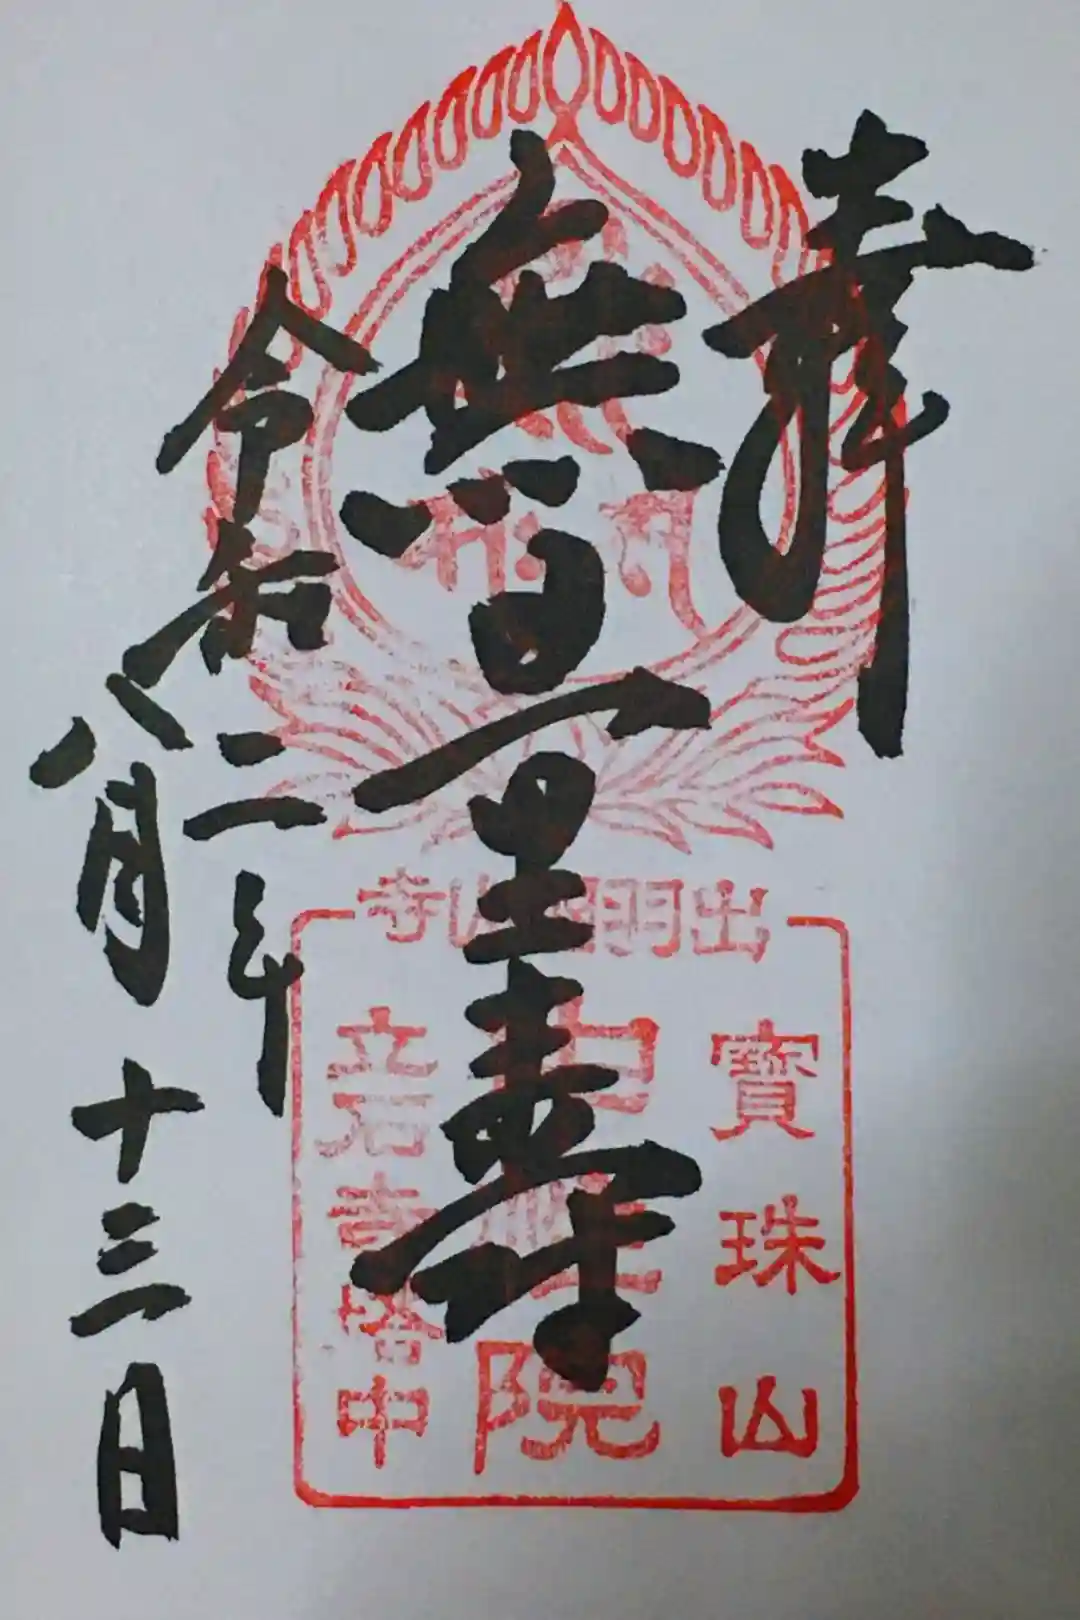 奉拝
無量寿
令和二年
八月十三日
出羽国山寺
寶珠山
中性院
立石寺塔中